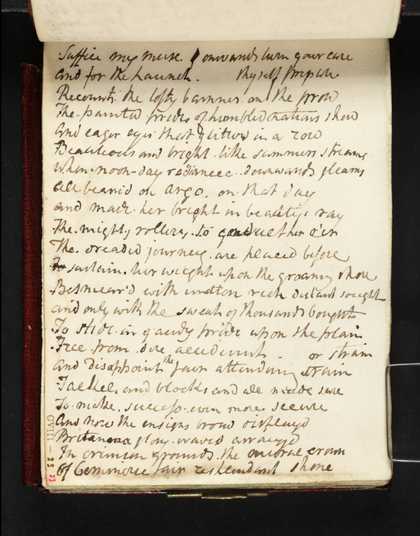 Suffice my muse & onwards turn your care
And for the Launch. Thyself prepare
Recount the lofty banner on the prow
The painted prides of humbled nations show
And eager eyes that glitter in a row
Beauteous and bright like summers streams
When noon-day radiance downwards gleams
All beam'd on Argo. on that day
and made her bright in beautys ray
The mighty rollers to conduct her o'er
The dreaded journey are placed before
To sustain her weight upon the groaning shore
Besmear'd with mutton rich sought
and only with the sweat of thousands bought
To slide in gaudy pride upon the plain
Free from dire accident or strain
And disappoint the fair attending train
Tackle and blocks and all made sure
To make success even more secure
And now the ensigns broad display'd
Britanias glory waved array'd
In crimson grounds the crown
Of Commerce fair resplendant shone
CVII